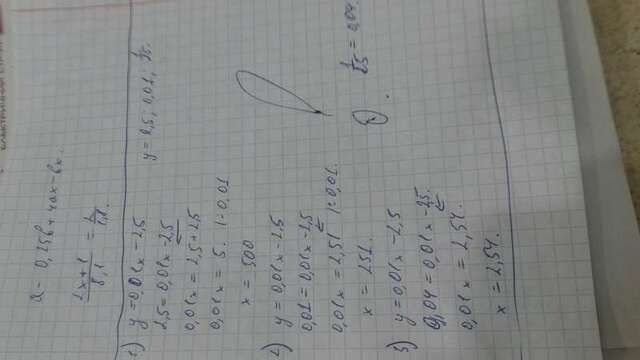 ЕЛЕКТРИЧНИЙ СТРУМ
a - 0,25в + 4ах - вх.
2x+1/8,1 = 2/1,8.
1) y = 0,01x - 2,5
y = 2,5; 0,01; 1/25.
2,5 = 0,01x - 2,5
0,01x = 2,5 + 2,5
0,01x = 5. |:0,01
x = 500
2) y = 0,01x - 2,5
0,01 = 0,01x - 2,5
0,01x = 2,51 |:0,01.
x = 251.
1/25 = 0,04.
3) y = 0,01x - 2,5
0,04 = 0,01x - 2,5.
0,01x = 2,54.
x = 2,54.